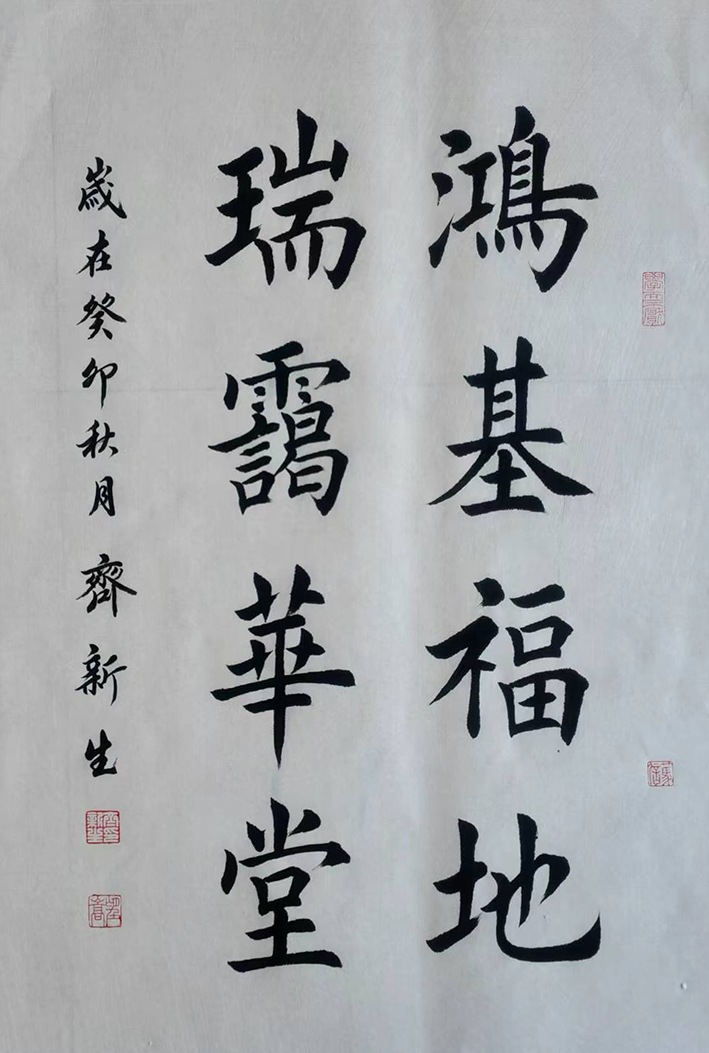 鴻基福地
瑞靄華堂
歲在癸卯秋月齊新生